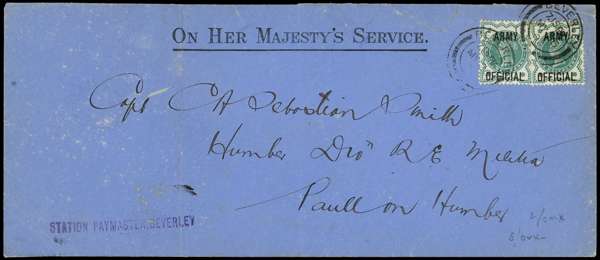 ON HER MAJESTY'S SERVICE.
BEVERLEY
ARMY
OFFICIAL
ARMY
OFFICIAL
Capt C A Sebastian Smith
Humber Divn R E Militia
Paull on Humber
STATION PAYMASTER, BEVERLEY